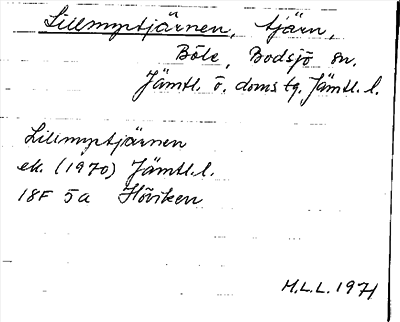 Lillmyrtjärnen, tjärn,
Böle, Bodsjö sn.
Jämtl. ö. doms tg. Jämtl. l.
Lillmyrtjärnen
ek. (1970) Jämtl. l.
18F 5a Höviken
M.L.L. 1971